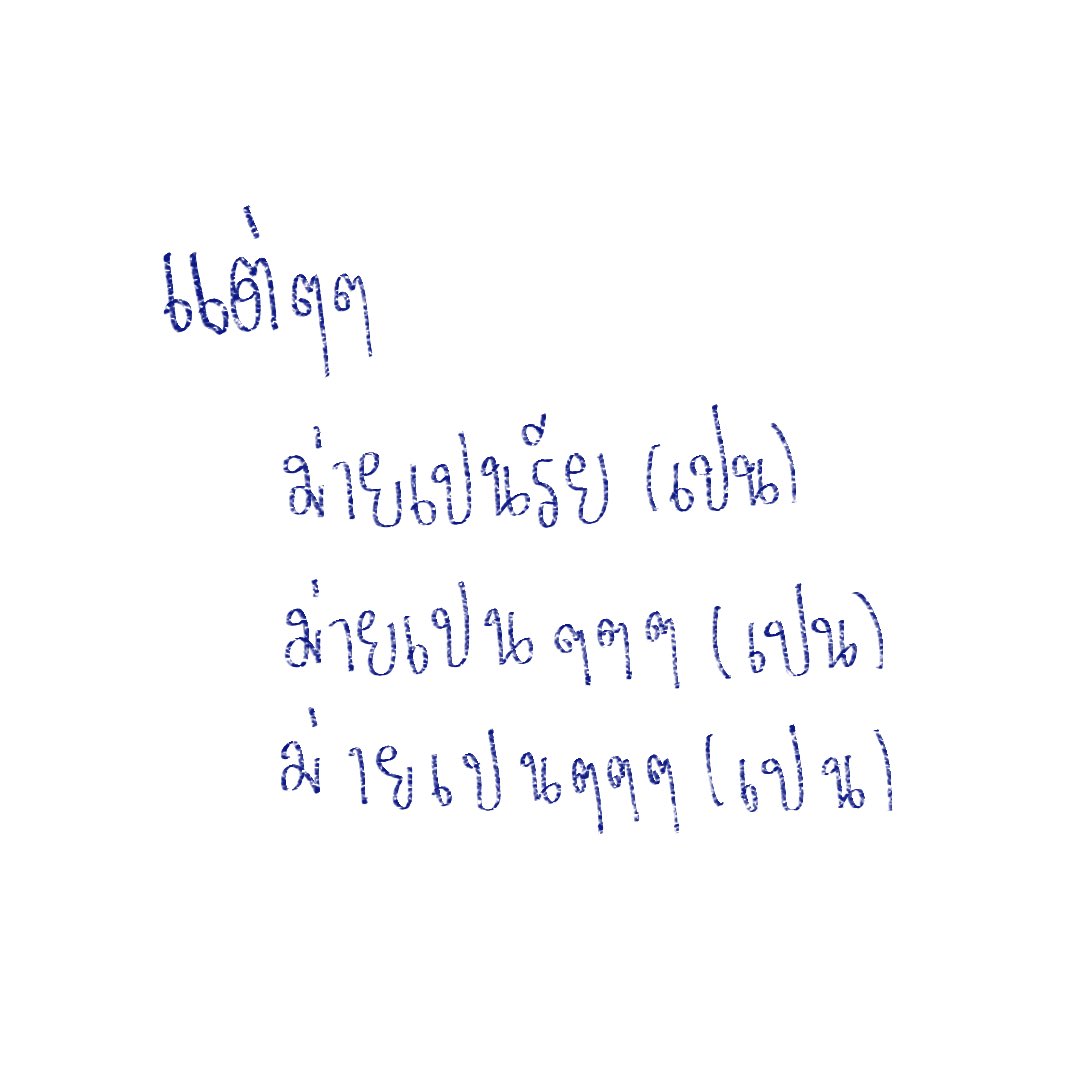 แต่ๆๆ
ม่ายเปนรัย (เปน)
ม่ายเปน ๆๆๆ (เปน)
ม่ายเปนๆๆๆ (เปน)